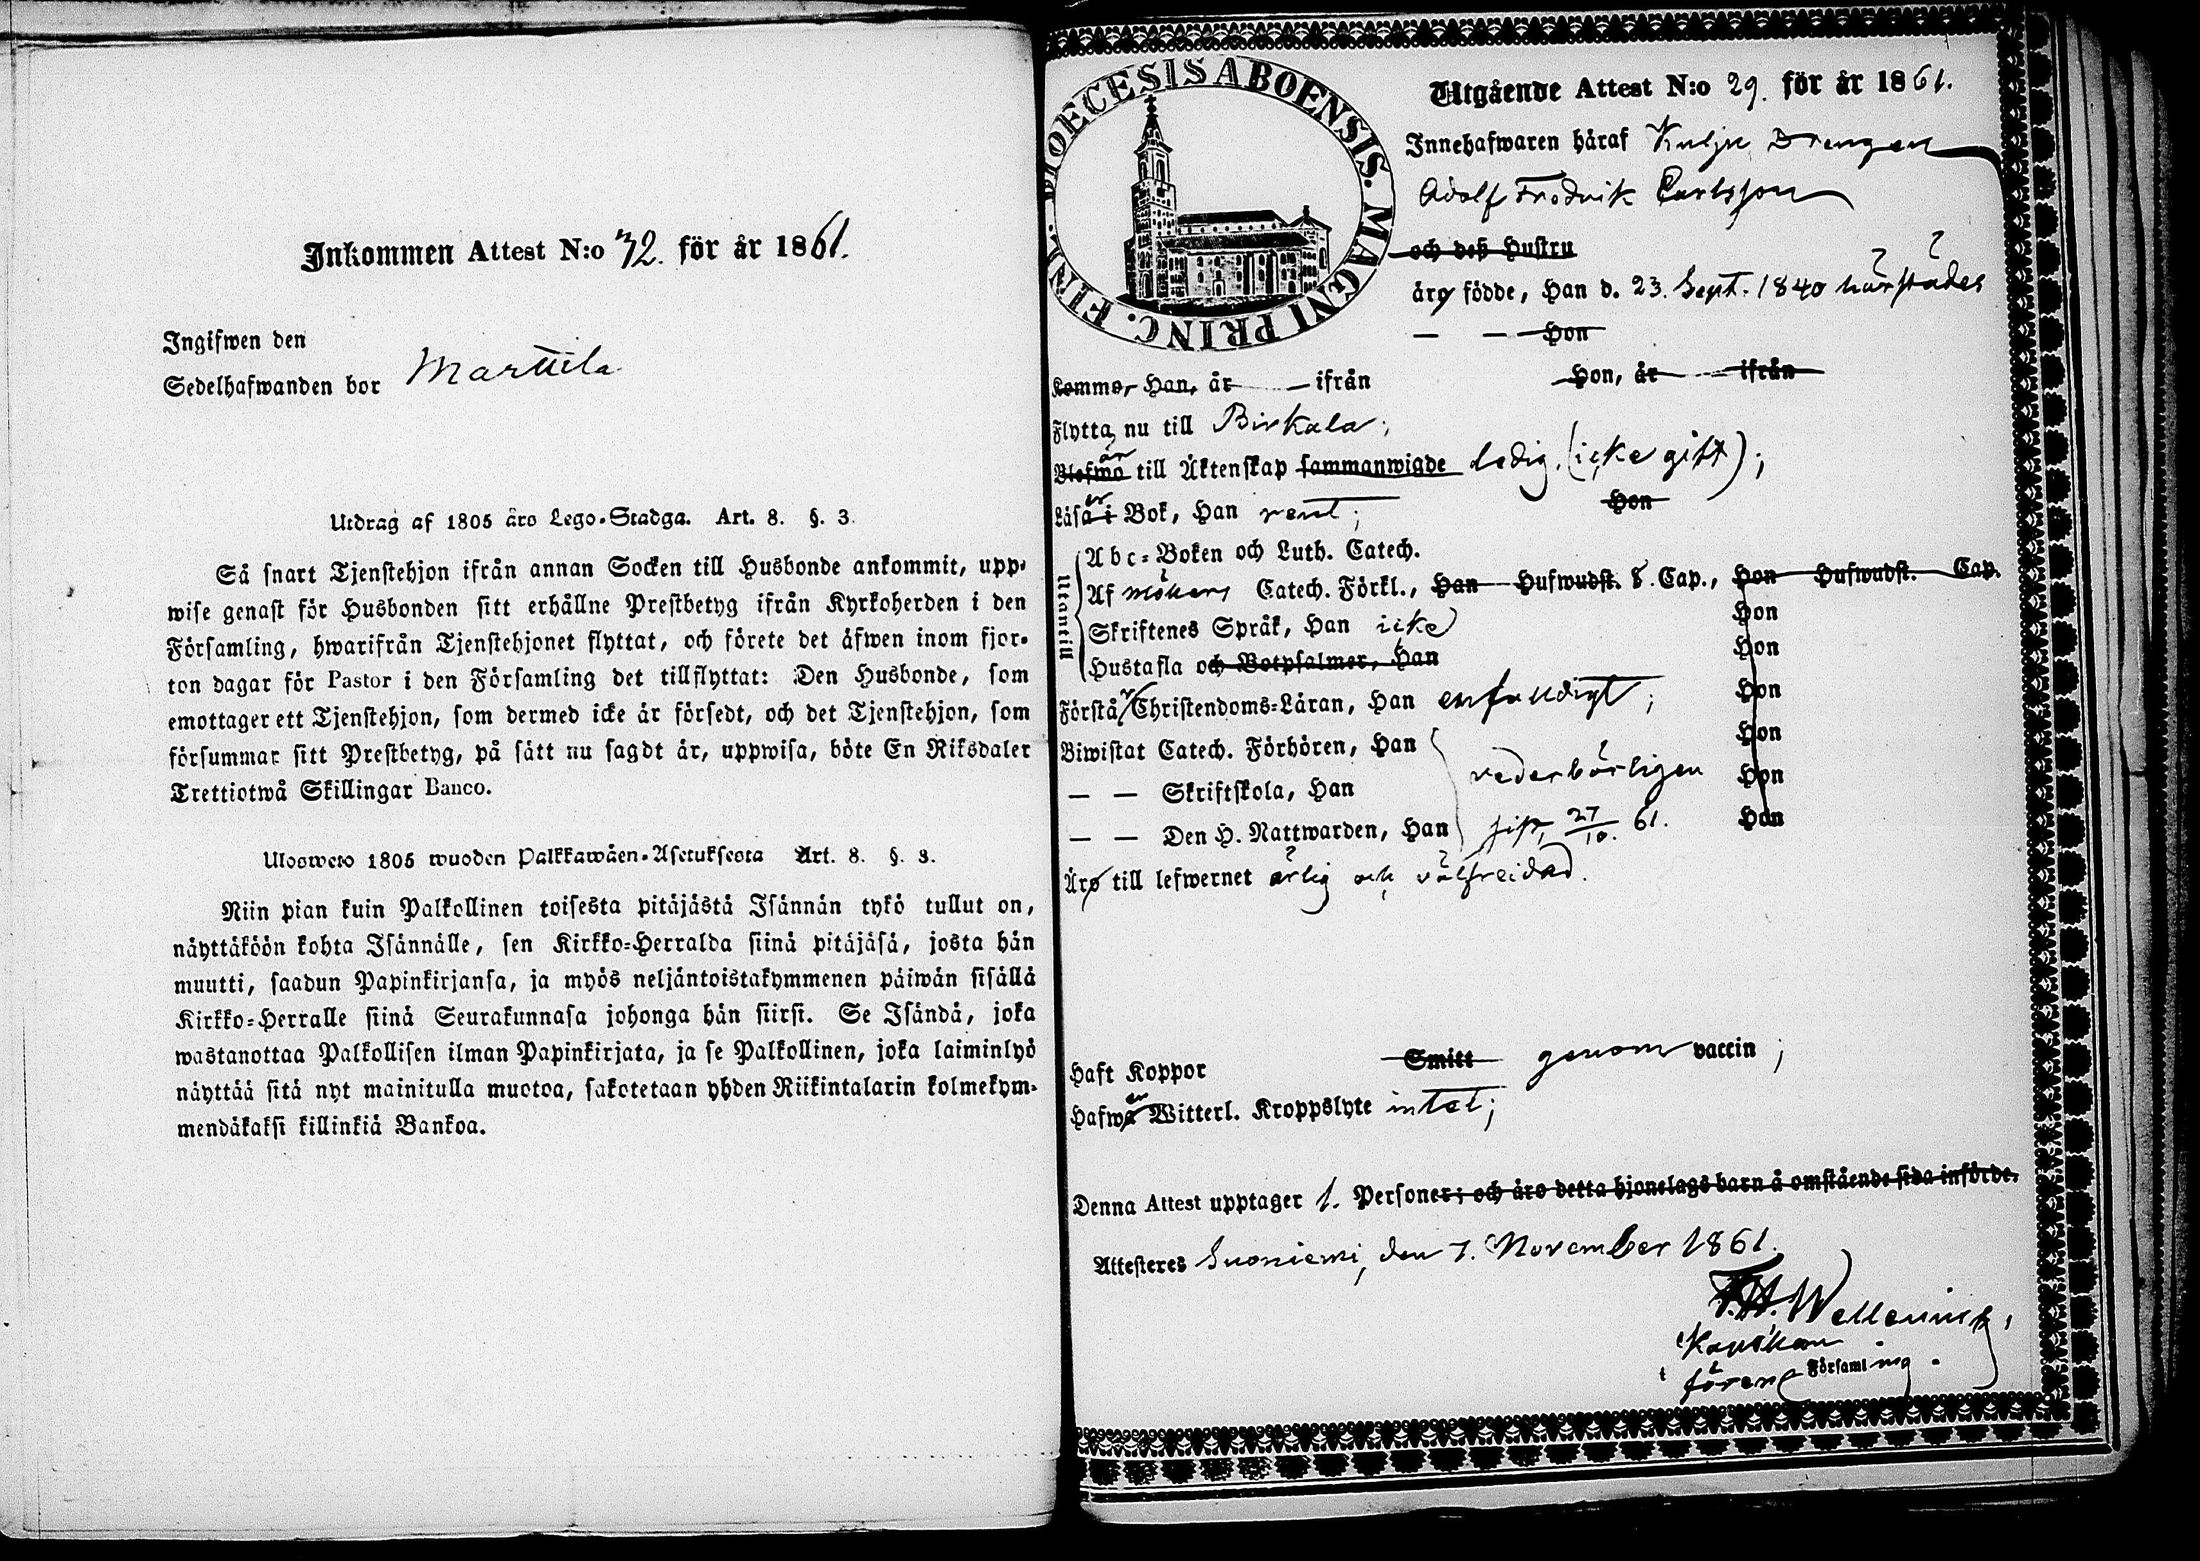 Inkommen Attest N:o 72. för år 1861.
Ingifwen den
Sedelhafwanden bor Marttila
Utdrag af 1805 års Lego-Stadga. Art. 8. §. 3.
Så snart Tjenstehjon ifrån annan Socken till Husbonde ankommit, upp-
wise genast för Husbonden sitt erhållne Prestbetyg ifrån Kyrkoherden i den
Församling, hwarifrån Tjenstehjonet flyttat, och förete det äfwen inom fjor-
ton dagar för Pastor i den Församling det tillflyttat: Den Husbonde, som
emottager ett Tjenstehjon, som dermed icke är försedt, och det Tjenstehjon, som
försummar sitt Prestbetyg, på sätt nu sagdt är, uppwisa, böte En Riksdaler
Trettiotwå Skillingar Banco.
Ulosweto 1805 wuoden Palkkawäen-Asetuksesta Art. 8. §. 3.
Niin pian kuin Palkollinen toisesta pitäjästä Isännän tykö tullut on,
näyttäköön kohta Isännälle, sen Kirkko-Herralda siinä pitäjäsä, josta hän
muutti, saadun Papinkirjansa, ja myös neljäntoistakymmenen päiwän sisällä
Kirkko-Herralle siinä Seurakunnasa johonga hän siirsi. Se Isändä, joka
wastanottaa Palkollisen ilman Papinkirjata, ja se Palkollinen, joka laiminlyö
näyttää sitä nyt mainitulla muotoa, sakotetaan yhden Riikintalarin kolmekym-
mendäkaksi killinkiä Bankoa.
DIOECESIS ABOENSIS. MAGNI PRINC. FINL.
Utgående Attest N:o 29. för år 1861.
Innehafwaren häraf Kulju Drengen
Adolf Fredrik Carlsson
och deß Hustru
äro födde, Han d. 23. Sept. 1840 härstädes
— — Hon
Kommo, Han, år — ifrån Hon, år — ifrån
Flytta, nu till Birkala;
Blefwo är till Äktenskap sammanwigde ledig. (icke gift);
Läsa i er Bok, Han rent; Hon
Utantill
Abc-Boken och Luth. Catech.
Af Catech. Förkl., Han Hufwudst. 8. Cap., Hon Hufwudst. Cap.
Skriftenes Språk, Han icke Hon
Hustafla och Botpsalmer, Han Hon
Förstår Christendoms-Läran, Han enfaldigt; Hon
Biwistat Catech. Förhören, Han Hon
— — Skriftskola, Han vederbörligen Hon
— — Den H. Nattwarden, Han sist, 27/10. 61. Hon
Äro till lefwernet ärlig och välfreidad.
Haft Koppor Smitt genom vaccin;
Hafwa er Witterl. Kroppslyte intet;
Denna Attest upptager 1. Personer; och äro detta hjonelags barn å omstående sida införde.
Attesteres Suoniemi, den 7. November 1861.
Kapellan
i Församling.